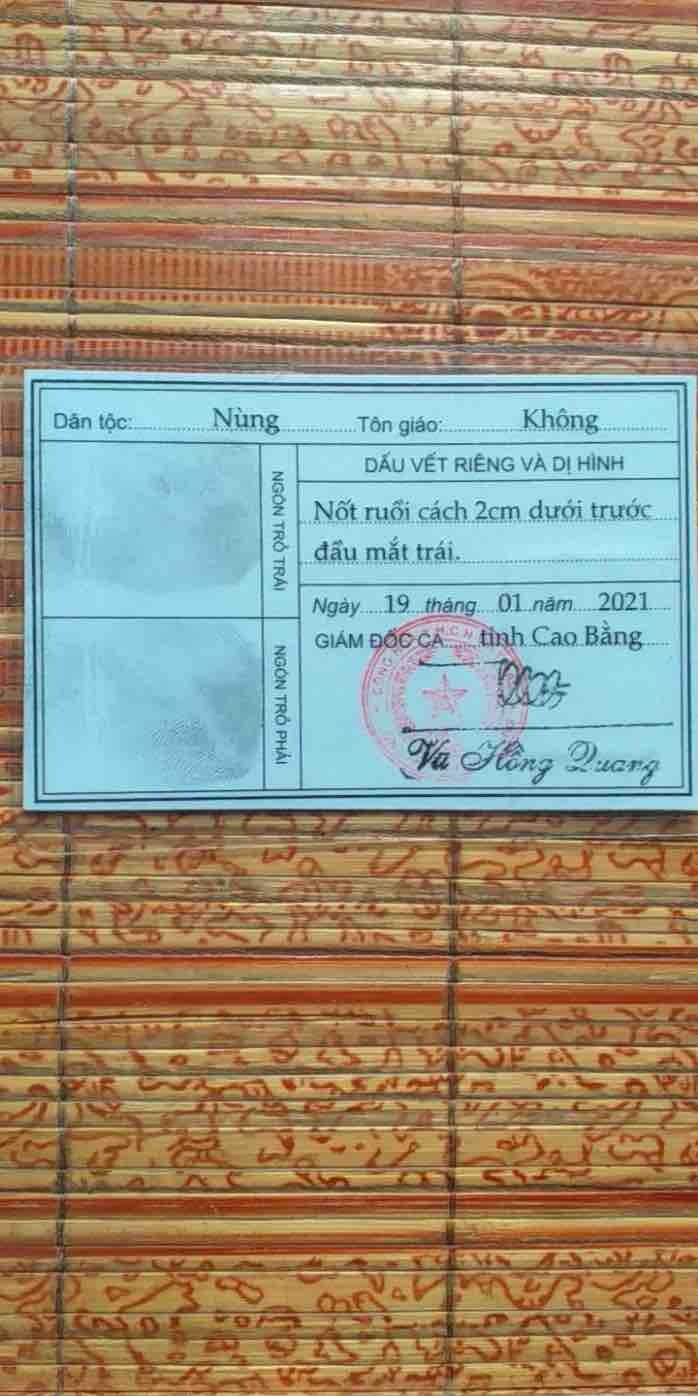 Dân tộc: Nùng Tôn giáo: Không
NGÓN TRỎ TRÁI
DẤU VẾT RIÊNG VÀ DỊ HÌNH
Nốt ruồi cách 2cm dưới trước
đầu mắt trái.
Ngày 19 tháng 01 năm 2021
GIÁM ĐỐC CA tỉnh Cao Bằng
NGÓN TRỎ PHẢI
Vũ Hồng Quang